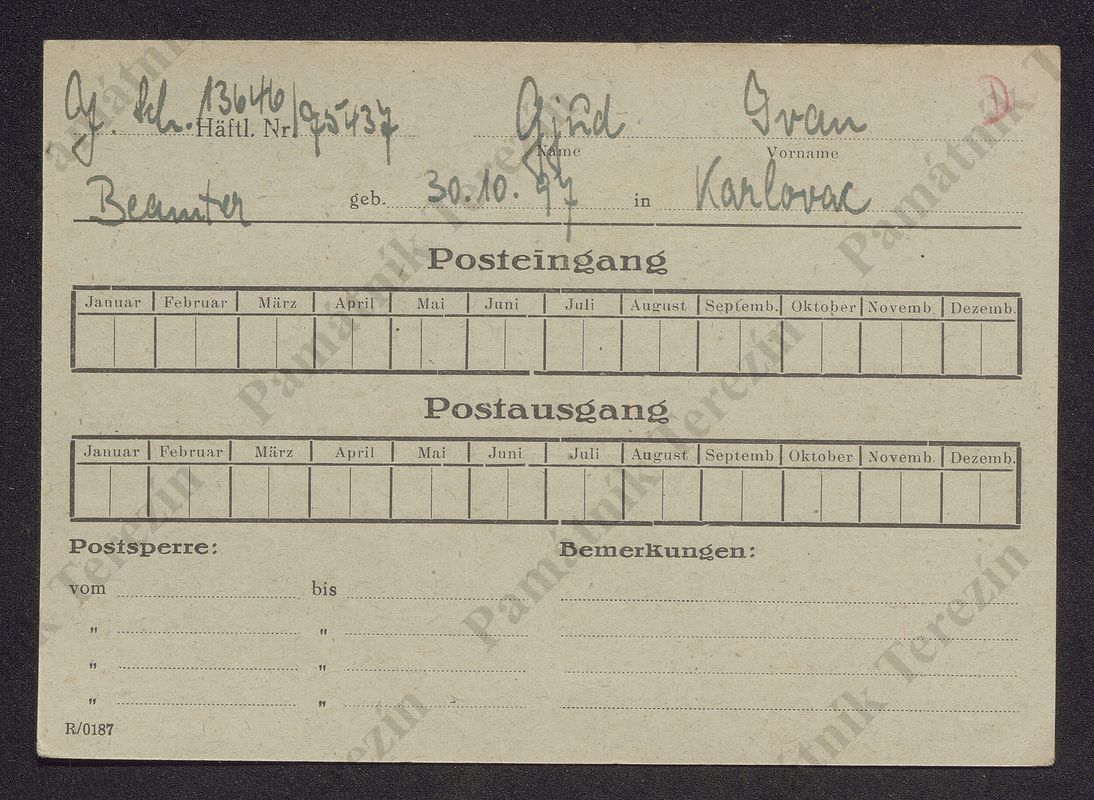 Sch. 13646/75437 Gjŭd Ivan D
Häftl. Nr. Name Vorname
Beamter geb. 30.10.97 in Karlovac
Posteingang
Januar Februar März April Mai Juni Juli August Septemb. Oktober Novemb. Dezemb.
Postausgang
Januar Februar März April Mai Juni Juli August Septemb Oktober Novemb. Dezemb.
Postsperre: Bemerkungen:
vom bis
" "
" "
" "
R/0187
Památník Terezín